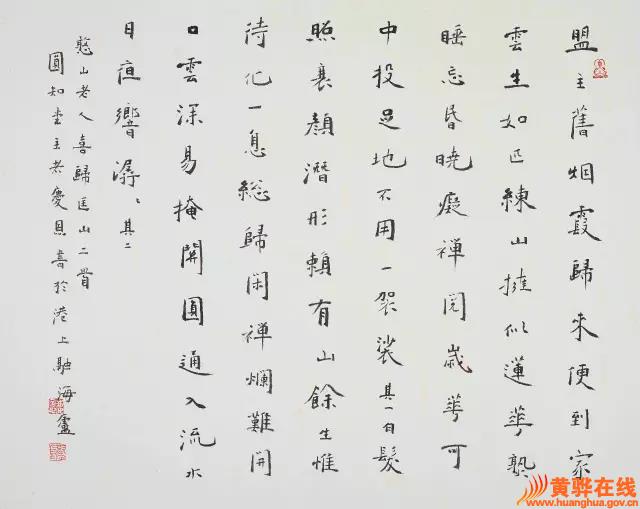 盟主舊烟霞歸來便到家
雲生如匹練山擁似蓮華熟
睡忘昏曉癡禪閱歲華可
中投足地不用一袈裟其一白髮
照衰顏潛形賴有山餘生惟
待化一息総歸閑禪爛難開
口雲深易掩關圓通入流水
日夜響潺〻其二
憨山老人喜歸匡山二首
圓知主慶恩書於港上融海盧
黄骅在线
www.huanghua.gov.cn